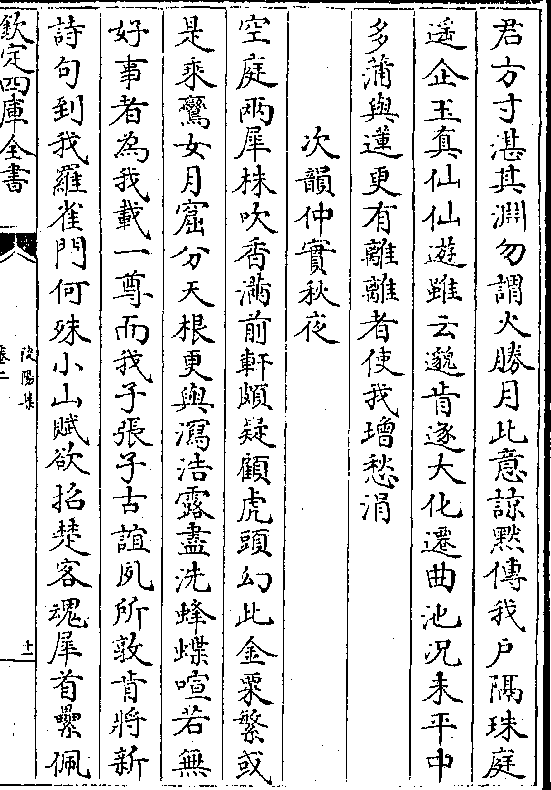 君方寸湛其淵勿謂火勝月此意諒黙傳我户隔珠庭
遥企玉真仙仙遊雖云邈肯逐大化遷曲池况未平中
多蒲與蓮更有離離者使我増愁涓
次韻仲實秋夜
空庭兩犀株吹香滿前軒頗疑顧虎頭幻此金粟繁或
是乘鸞女月窟分天根更與瀉沽露盡洗蜂蝶喧若無
好事者為我載一尊而我子張子古誼夙所敦肯將新
詩句到我羅雀門何殊小山賦欲招楚客魂犀首纍佩
欽定四庫全書
陵陽集
卷二
十